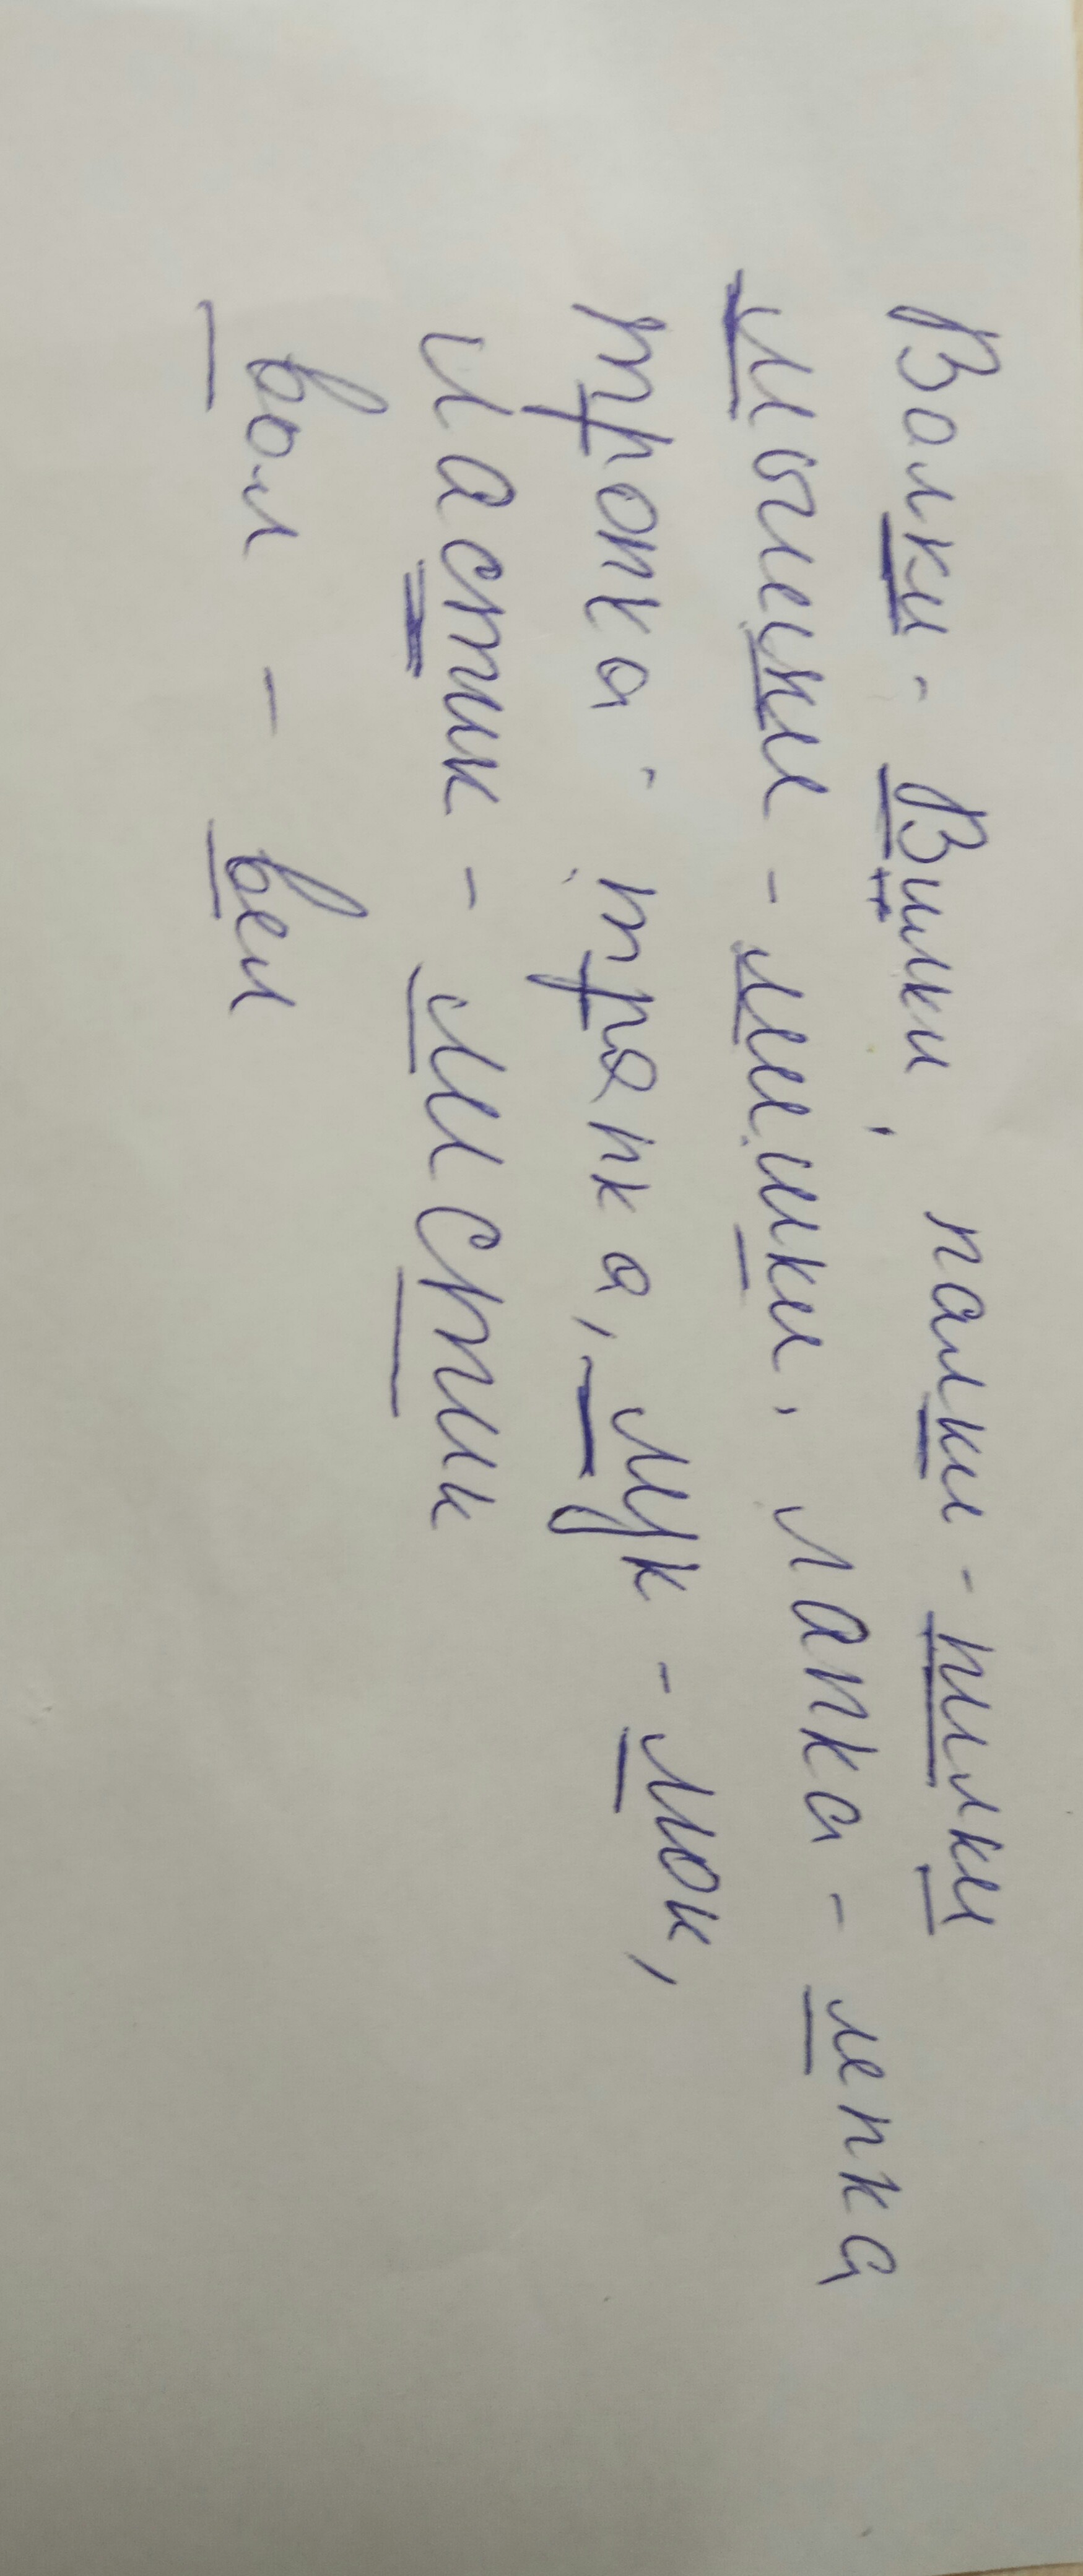 Волки - Вилки, палки - пилки
Мышки - мишки, лапка - лепка
тропка - тряпка, лук - люк,
Ластик - листик
вол - вел